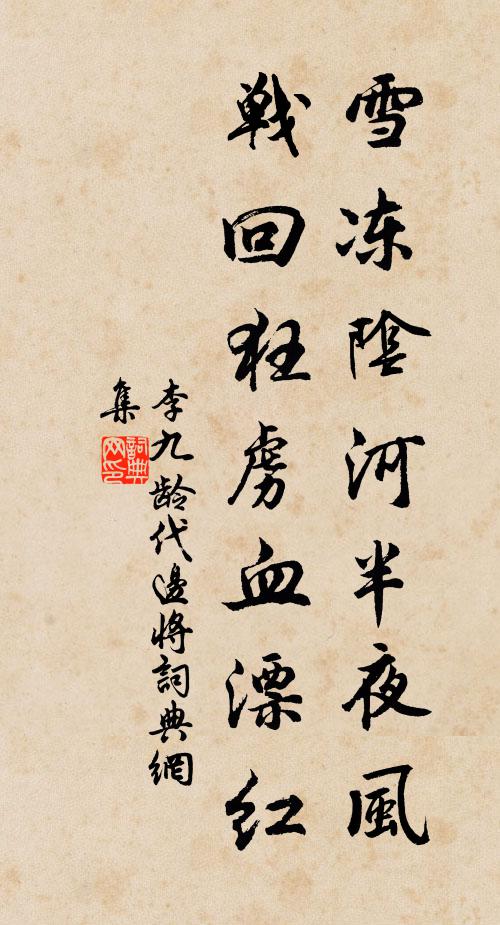 雪冻陰河半夜風
戦回狂虜血漂红
李九龄代邊將詞典網
集
詞典
网印